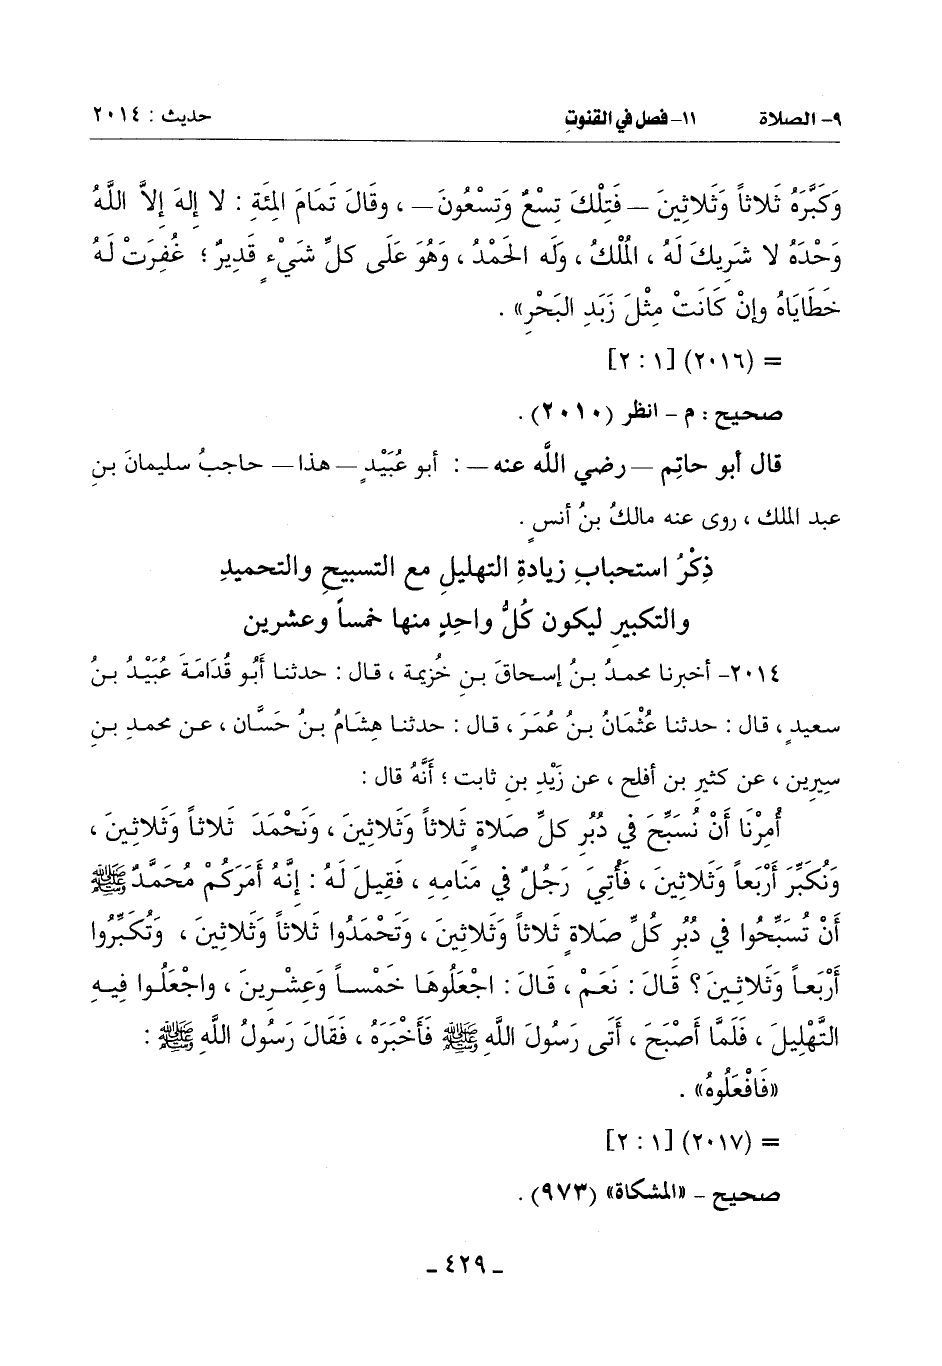 ٩- الصلاة ١١- فصل في القنوت حديث : ٢٠١٤
وَكَبَّرَهُ ثَلاثاً وَثَلاثِينَ — فَتِلْكَ تِسْعٌ وَتِسْعُونَ — ، وقَالَ تَمَامَ المِئَةِ : لا إلهَ إلاَّ اللَّهُ
وَحْدَهُ لا شَرِيكَ لَهُ ، المُلْكُ ، وله الحَمْدُ ، وَهُوَ عَلَى كلِّ شَيْءٍ قَدِيرٌ ؛ غُفِرَتْ لَهُ
خَطَايَاهُ وإنْ كَانَتْ مِثْلَ زَبَدِ البَحْرِ» .
= (٢٠١٦) [١ : ٢]
صحيح : م – انظر (٢٠١٠) .
قال أبو حاتِم — رضي اللَّه عنه — : أبو عُبَيْدٍ — هذا — حاجبُ سليمانَ بنِ
عبد الملك ، روى عنه مالكُ بنُ أنسٍ .
ذِكْرُ استحبابِ زيادةِ التهليلِ مع التسبيحِ والتحميدِ
والتكبيرِ ليكون كُلُّ واحِدٍ منها خمساً وعشرين
٢٠١٤- أخبرنا محمدُ بنُ إسحاقَ بنِ خُزيمة ، قال : حدثنا أَبُو قُدَامَةَ عُبَيْدُ بنُ
سعيدٍ ، قال : حدثنا عُثْمَانُ بنُ عُمَرَ ، قال : حدثنا هِشَامُ بنُ حَسَّان ، عن محمدِ بنِ
سِيرِين ، عن كثيرِ بن أفلح ، عن زَيْدِ بن ثابت ؛ أَنَّهُ قال :
أُمِرْنَا أَنْ نُسَبِّحَ في دُبُرِ كلِّ صَلاةٍ ثَلاثاً وَثَلاثِينَ ، وَنَحْمَدَ ثَلاثاً وَثَلاثِينَ ،
وَنُكَبِّرَ أَرْبَعاً وَثَلاثِينَ ، فَأُتِيَ رَجُلٌ في مَنَامِهِ ، فَقِيلَ لَهُ : إِنَّهُ أَمَرَكُمْ مُحَمَّدٌ ﷺ
أَنْ تُسَبِّحُوا في دُبُرِ كُلِّ صَلاةٍ ثَلاثاً وَثَلاثِينَ ، وَتَحْمَدُوا ثَلاثاً وَثَلاثِينَ ، وَتُكَبِّرُوا
أَرْبَعاً وَثَلاثِينَ ؟ قَالَ : نَعَمْ ، قَالَ : اجْعَلُوهَا خَمْساً وَعِشْرِينَ ، واجْعَلُوا فِيهِ
التَّهْلِيلَ ، فَلَمَّا أَصْبَحَ ، أَتَى رَسُولَ اللَّهِ ﷺ فَأَخْبَرَهُ ، فَقَالَ رَسُولُ اللَّهِ ﷺ :
«فَافْعَلُوهُ» .
= (٢٠١٧) [١ : ٢]
صحيح – «المشكاة» (٩٧٣) .
– ٤٢٩ –